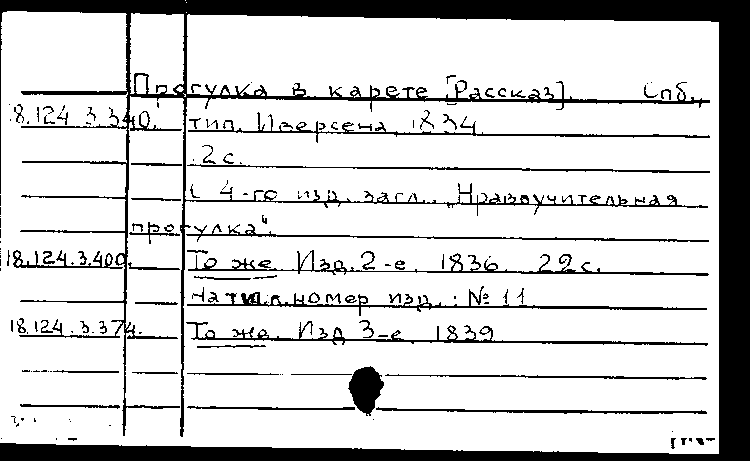 Прогулка в карете [Рассказ]. Спб.,
18.124.3.340. тип. Иверсена, 1834
2 с.
С 4-го изд. загл.: „Нравоучительная
прогулка".
18.124.3.400. То же. Изд. 2-е. 1836. 22 с.
На тит. л. номер изд.: № 11.
18.124.3.374. То же. Изд 3-е. 1839